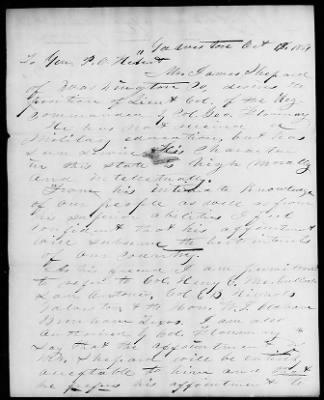 Galveston Oct
To Gen. P.O. Hebert
Mr. James Shepard
of Washington Co, desires the
position of Lieut Col, of the Reg
Commanded by Col. Geo. Flournoy
He has not received a
Military education, but has
seen service. His Character
in this State is high Morally
and intellectually.
From his intimate Knowledge
of our people as well as from
his superior abilities I feel
confident that his appointment
will subserve the best interests
of our Country.
As his friend I am permitted
to refer to Col. Henry E. McCulloch
San Antonio, Col E.B. Nichols
Galveston & the Hon.
Brenham Texas. I am also
authorized by Col. Flournoy to
say that the appointment of
Mr. Shepard will be entirely
acceptable to him and
he his appointment to